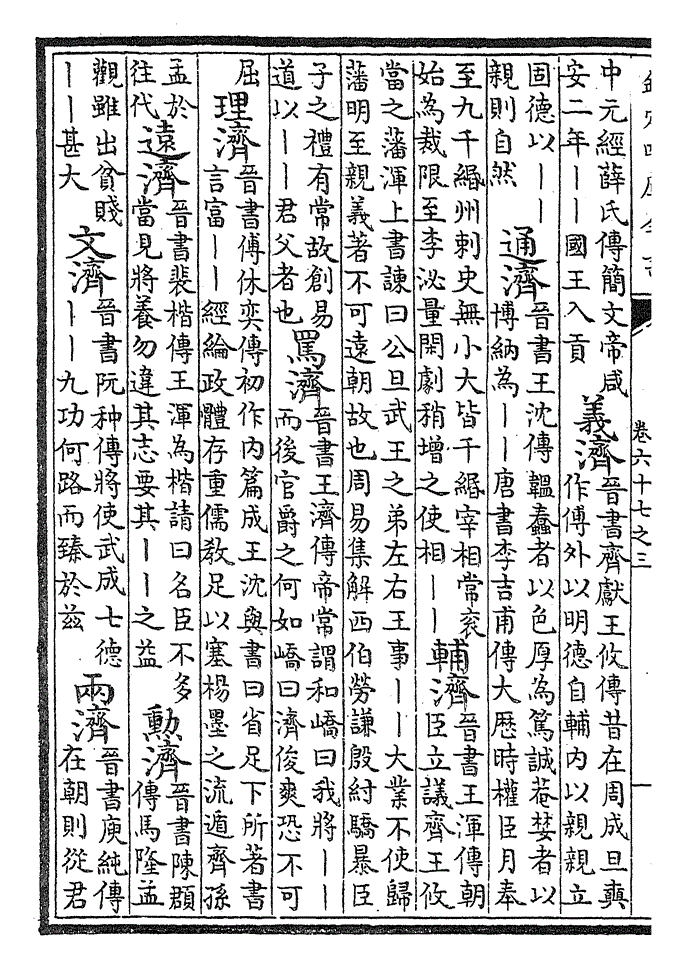 欽定四庫全書
卷六十七之三
中元經薛氏傳簡文帝咸
安二年――國王入貢
義濟
晉書齊獻王攸傳昔在周成旦奭
作傅外以明德自輔內以親親立
固德以――
親則自然
通濟
晉書王沈傳韞蠢者以色厚為篤誠菴婪者以
博納為――唐書李吉甫傳大歷時權臣月奉
至九千緡州刺史無小大皆千緡宰相常袞
始為裁限至李泌量閑劇稍增之使相――
輔濟
晉書王渾傳朝
臣立議齊王攸
當之藩渾上書諫曰公旦武王之弟左右王事――大業不使歸
藩明至親義著不可遠朝故也周易集解西伯勞謙殷紂驕暴臣
子之禮有常故創易
道以――君父者也
罵濟
晉書王濟傳帝常謂和嶠曰我將――
而後官爵之何如嶠曰濟俊爽恐不可
屈
理濟
晉書傅休奕傳初作內篇成王沈與書曰省足下所著書
言富――經綸政體存重儒教足以塞楊墨之流遁齊孫
孟於
往代
遠濟
晉書裴楷傳王渾為楷請曰名臣不多
當見將養勿違其志要其――之益
勳濟
晉書陳頵
傳馬隆孟
觀雖出貧賤
――甚大
文濟
晉書阮种傳將使武成七德
――九功何路而臻於兹
兩濟
晉書庾純傳
在朝則從君